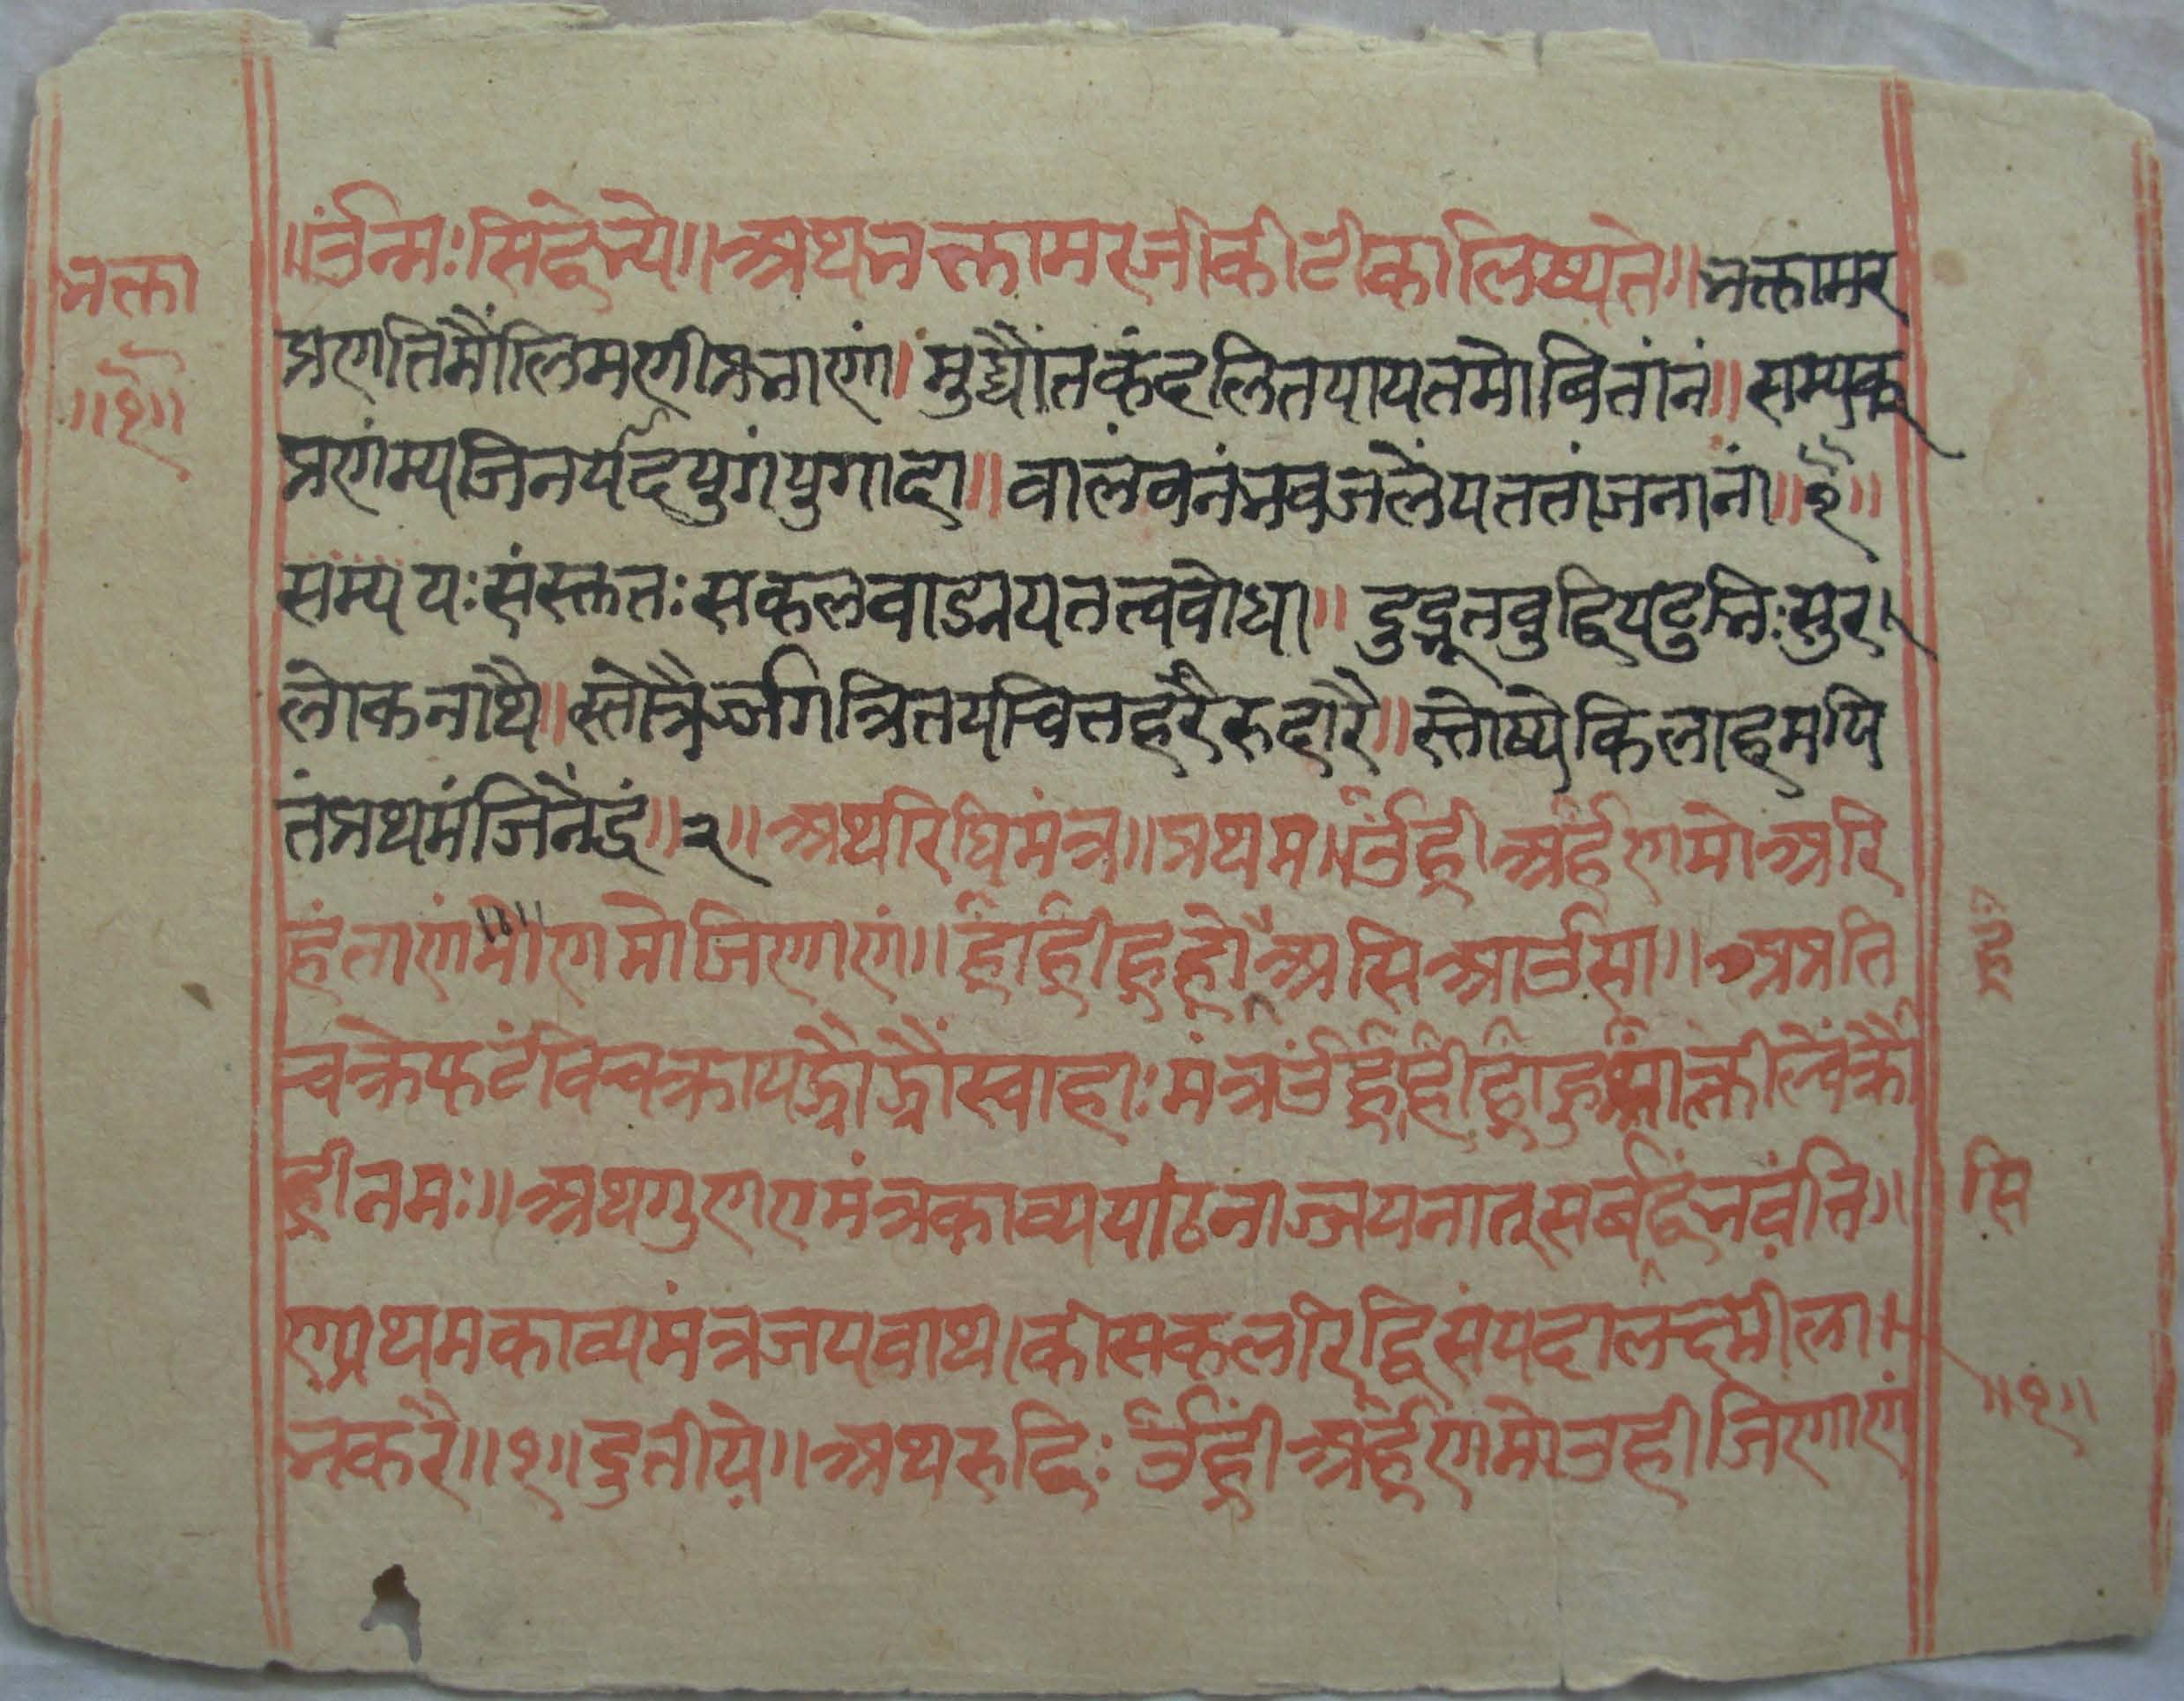 ॥उंन्मःसिद्वेभ्ये॥अथभक्तामरजीकीटीकालिष्यते॥भक्तामर
भक्ता
॥१॥
प्रणतिमौंलिमणीप्रभाणं।मुद्यौंतकंदलितपापतमोबितांनं॥सम्पक्
प्रणंम्पजिनर्पदपुगंपुगादा॥वालंवनंभवजलेंपततांजनानां॥१॥
सम्पयःसंस्ततःसकलवाङ्मयतत्ववोधा॥दुद्भूतबुद्धिपटुभिःसुरा
लोकनाथै॥स्तोत्रैर्ज्जगत्रितयचित्तहरैरुदारै॥स्तोष्येकिलाहमपि
तंप्रथमंजिनैंद्रं॥२॥अथरिधिमंत्र॥प्रथम॥उंह्रीअर्हंणमोअरि
हंताणंमोणमोजिणाणं॥ह्रांह्रींह्रुंह्रौंअसिआउसा॥अप्रति
चक्रेफटविचक्रायझ्रौंझ्रौंस्वाहाःमंत्रउं
ह्रीनमः॥अथगुणणमंत्रकाव्यपाठनाज्जपनात्सर्ब
सि
प्रथमकाव्यमंत्रजपवाथकीसकलरिद्धिसंपदालक्ष्मीला
भकरै॥१॥दुतीये॥अथरुद्धिःउंह्रींअर्हंणमोउहीजिणाणं
॥१॥